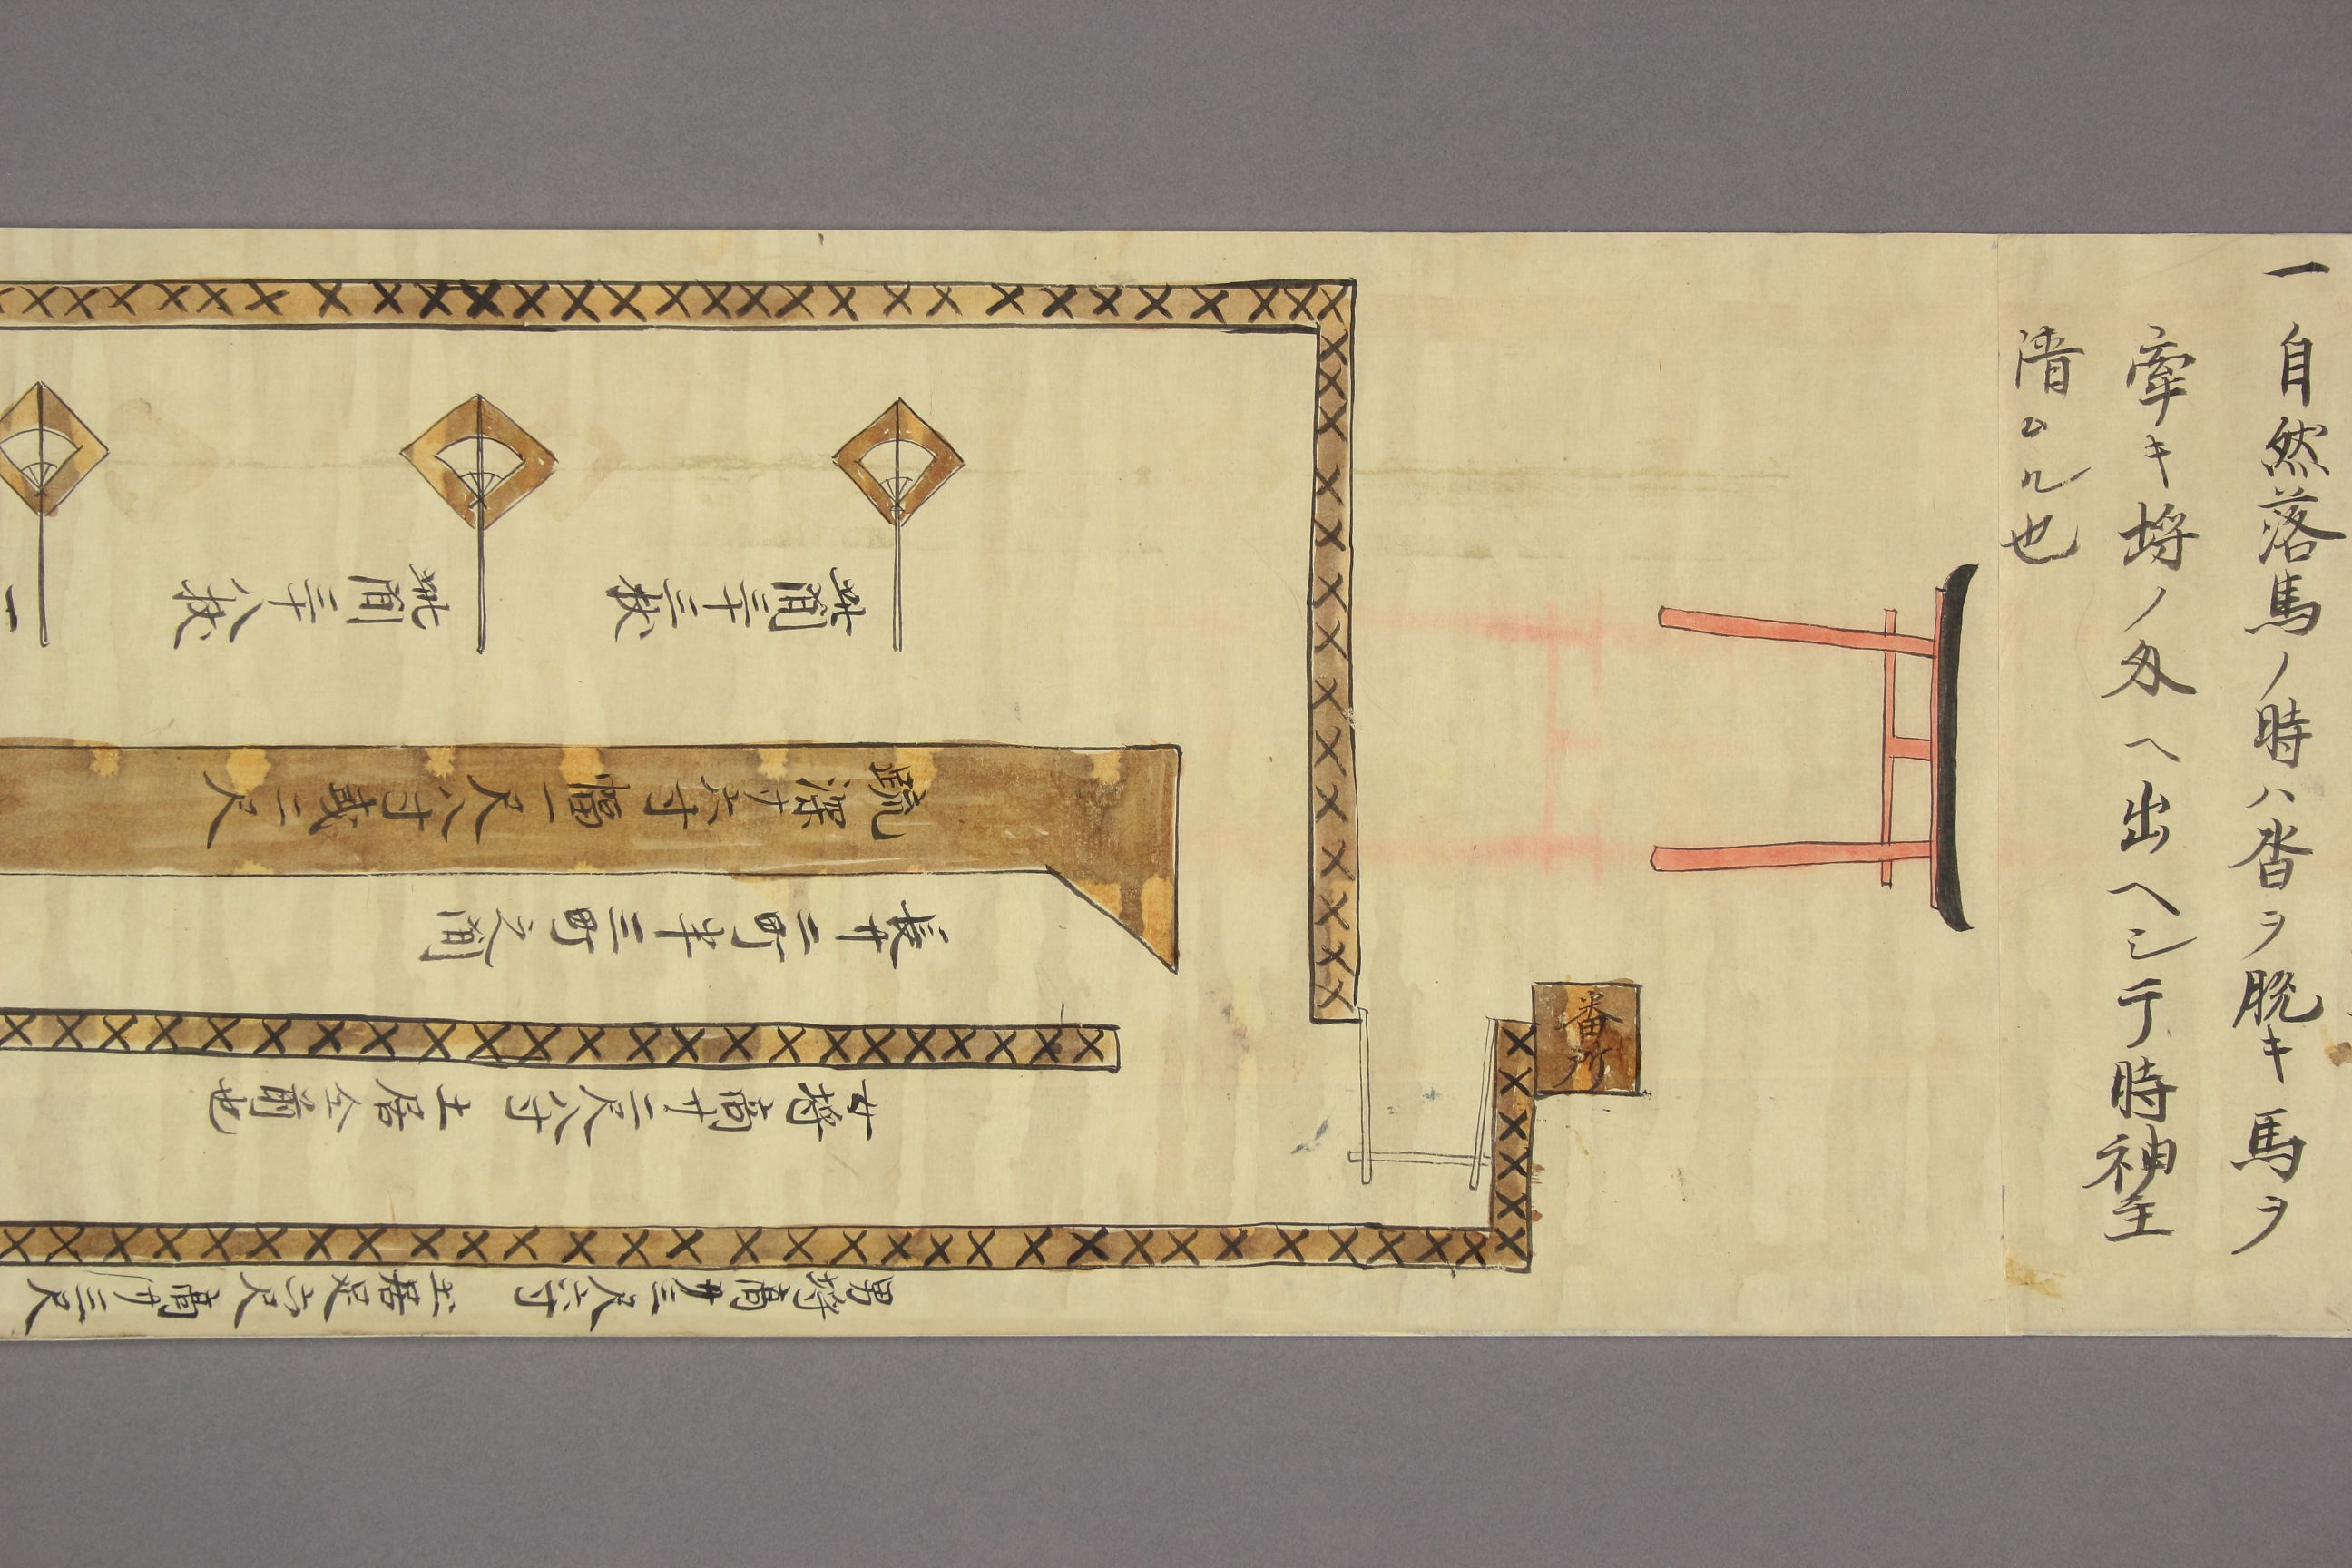 一 自然落馬ノ時ハ沓ヲ脱キ馬ヲ
牽キ埒ノ外ヘ出ヘシテ時神主
潛ムル也
番所
間三十三枚
間三十八枚
深サ六寸 一尺八寸或二尺
長サ二町半三町之間
女埒高サ二尺八寸 土居全前也
男埒高サ三尺六寸 土居足六尺高サ三尺
一